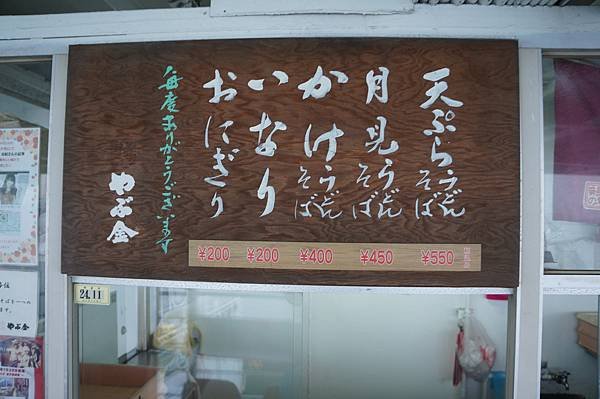 天ぷらうどんそば
月見うどんそば
かけうどんそば
いなり
おにぎり
毎度ありがとうございます
やぶ金
¥200 ¥200 ¥400 ¥450 ¥550
24.11
やぶ金